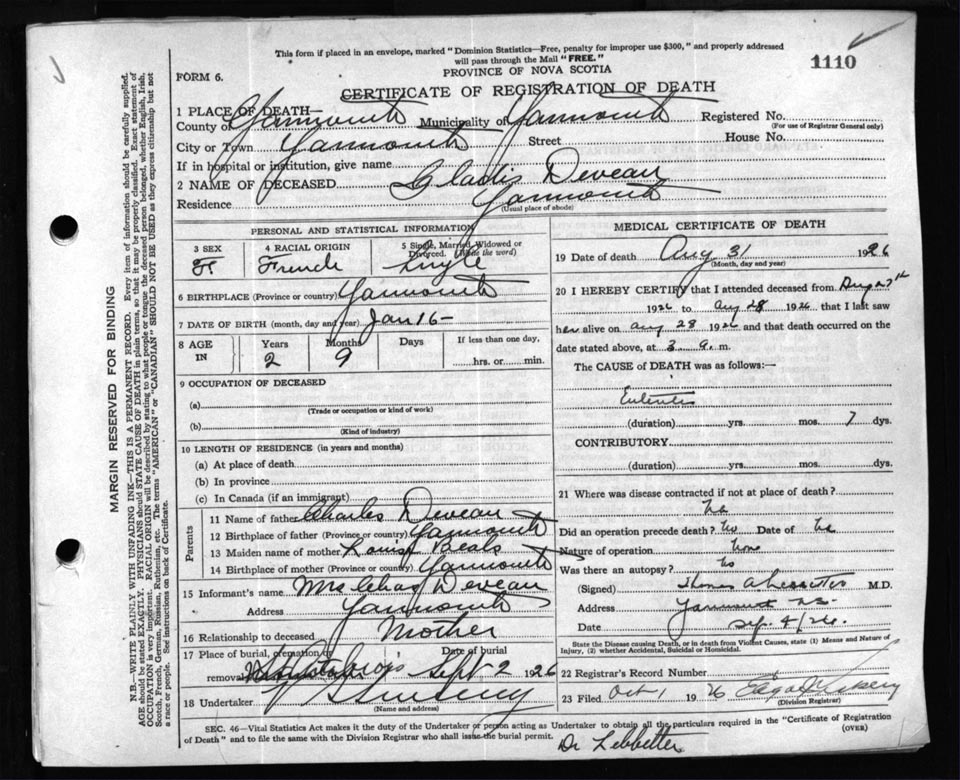 This form if placed in an envelope, marked "Dominion Statistics—Free, penalty for improper use $300," and properly addressed
will pass through the Mail "FREE."
1110
FORM 6.
PROVINCE OF NOVA SCOTIA
CERTIFICATE OF REGISTRATION OF DEATH
1 PLACE OF DEATH—
County of Yarmouth Municipality of Yarmouth Registered No.
(For use of Registrar General only)
City or Town Yarmouth Street House No.
If in hospital or institution, give name
2 NAME OF DECEASED Gladis Deveau
Residence Yarmouth
(Usual place of abode)
PERSONAL AND STATISTICAL INFORMATION
3 SEX 4 RACIAL ORIGIN 5 Single, Married, Widowed or Divorced. (Write the word)
F French Single
6 BIRTHPLACE (Province or country) Yarmouth
7 DATE OF BIRTH (month, day and year) Jan 16 -
8 AGE IN Years Months Days If less than one day,
2 9 hrs. or min.
9 OCCUPATION OF DECEASED
(a)
(Trade or occupation or kind of work)
(b)
(Kind of industry)
10 LENGTH OF RESIDENCE (in years and months)
(a) At place of death
(b) In province
(c) In Canada (if an immigrant)
Parents
11 Name of father Charles Deveau
12 Birthplace of father (Province or country) Yarmouth
13 Maiden name of mother Louise Beals
14 Birthplace of mother (Province or country) Yarmouth
15 Informant's name Mrs Chas Deveau
Address Yarmouth
16 Relationship to deceased Mother
17 Place of burial, cremation or Date of burial
removal Sept 2 1926
18 Undertaker Sweeny
(Name and address)
MEDICAL CERTIFICATE OF DEATH
19 Date of death Aug 31 1926
(Month, day and year)
20 I HEREBY CERTIFY that I attended deceased from Aug 27th
1926 to Aug 28 1926 that I last saw
her alive on Aug 28 1926 and that death occurred on
date stated above, at 3 a. m.
The CAUSE of DEATH was as follows:—
Enteritis
(duration) yrs. mos. 7 dys.
CONTRIBUTORY
(duration) yrs. mos. dys.
21 Where was disease contracted if not at place of death?
Did an operation precede death? No Date of
Nature of operation None
Was there an autopsy? No
(Signed) M.D.
Address Yarmouth N.S.
Date Sep. 4/26.
State the Disease causing Death, or in death from Violent Causes, state (1) Means and Nature of
Injury, (2) whether Accidental, Suicidal or Homicidal.
22 Registrar's Record Number
23 Filed Oct 1 1926
(Division Registrar)
SEC. 46—Vital Statistics Act makes it the duty of the Undertaker or person acting as Undertaker to obtain all the particulars required in the "Certificate of Registration
of Death" and to file the same with the Division Registrar who shall issue the burial permit.
(OVER)
Dr Lebbetter
MARGIN RESERVED FOR BINDING
N.B.—WRITE PLAINLY WITH UNFADING INK—THIS IS A PERMANENT RECORD. Every item of information should be carefully supplied.
AGE should be stated EXACTLY. PHYSICIANS should STATE CAUSE OF DEATH in plain terms, so that it may be properly classified. Exact statement of
OCCUPATION is very important. RACIAL ORIGIN will be described by stating to what people or tongue the deceased person belonged, whether English, Irish,
Scotch, French, German, Russian, Ruthenian, etc. The terms "AMERICAN" or "CANADIAN" SHOULD NOT BE USED as they express citizenship but not
a race or people. See instructions on back of Certificate.